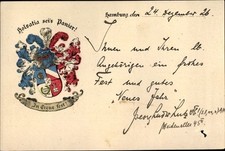 Helvetia sei's Panier!
Hamburg den 24 Dezember 26.
Ihnen und Ihren lb.
Angehörigen ein frohes
Fest und gutes
"Neues Jahr"
In Treue fest!